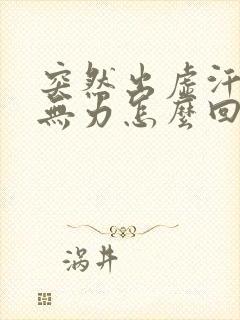 突然出虛汗
無力怎麼回
涡井